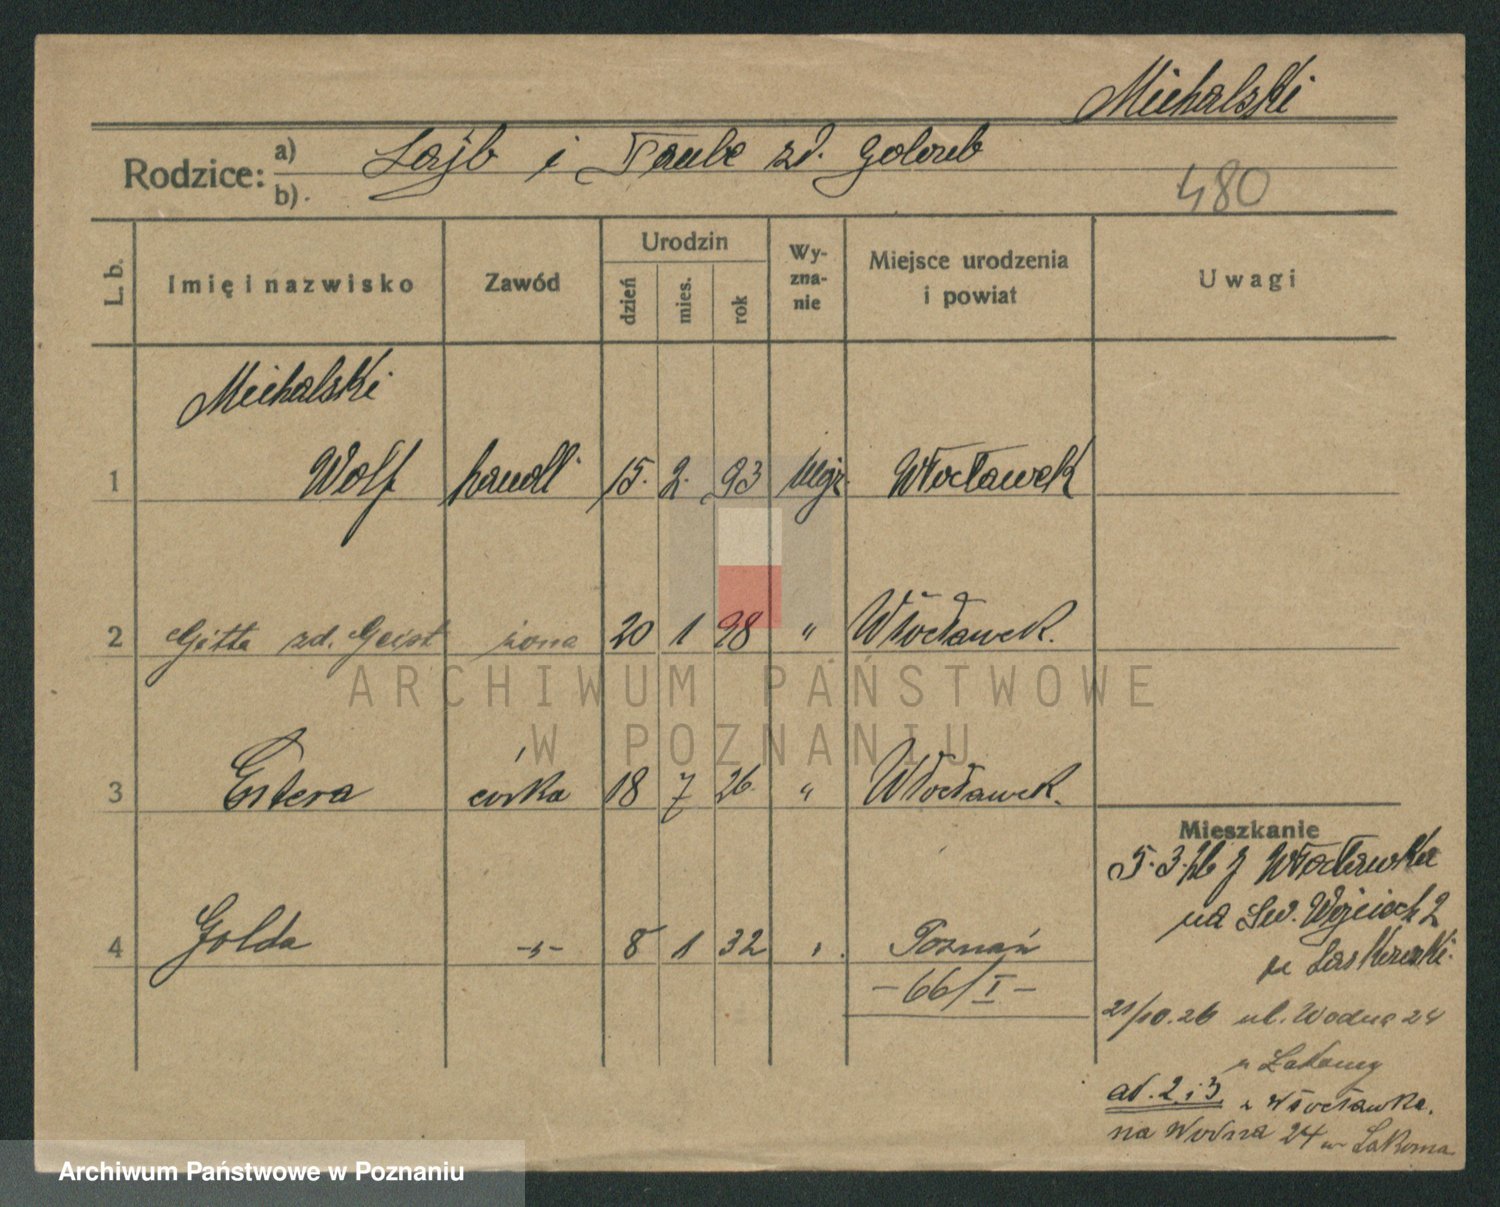 Michalski
Rodzice: a) Lajb i Taube zd. Golomb
b)
480
L. b. Imię i nazwisko Zawód Urodzin dzień mies. rok Wy-zna-nie Miejsce urodzenia i powiat Uwagi
Michalski
1 Wolf handl 15. 2. 93 Mojż. Włocławek
2 Gitta zd. Geist żona 20 1 98 " Włocławek.
3 Estera córka 18 7 26 " Włocławek.
Mieszkanie
5.3.26 z Włocławka
na Św. Wojciech 2
4 Golda -"- 8 1 32 " Poznań
-66/I-
21/10.26 ul. Wodna 24
ad. 2 i 3 z Włocławka.
na Wodna 24
ARCHIWUM PAŃSTWOWE
W POZNANIU
Archiwum Państwowe w Poznaniu